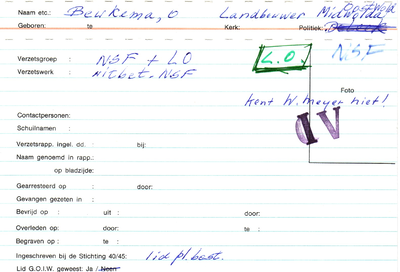 Naam etc.: Beukema, O Landbouwer Midwolda Oostwold
Geboren: te Kerk: Politiek:
N.S.F
Verzetsgroep : NSF + LO L.O.
Verzetswerk : uitbet. NSF
Foto
kent W. Meyer niet!
Contactpersonen:
Schuilnaam :
VD
Verzetsrapp. ingel. dd. : bij:
Naam genoemd in rapp.:
op bladzijde:
Gearresteerd op : door:
Gevangen gezeten in :
Bevrijd op : uit : door:
Overleden op: door: te :
Begraven op : te :
Ingeschreven bij de Stichting 40/45: lid pl. best.
Lid G.O.I.W. geweest: Ja / Neen